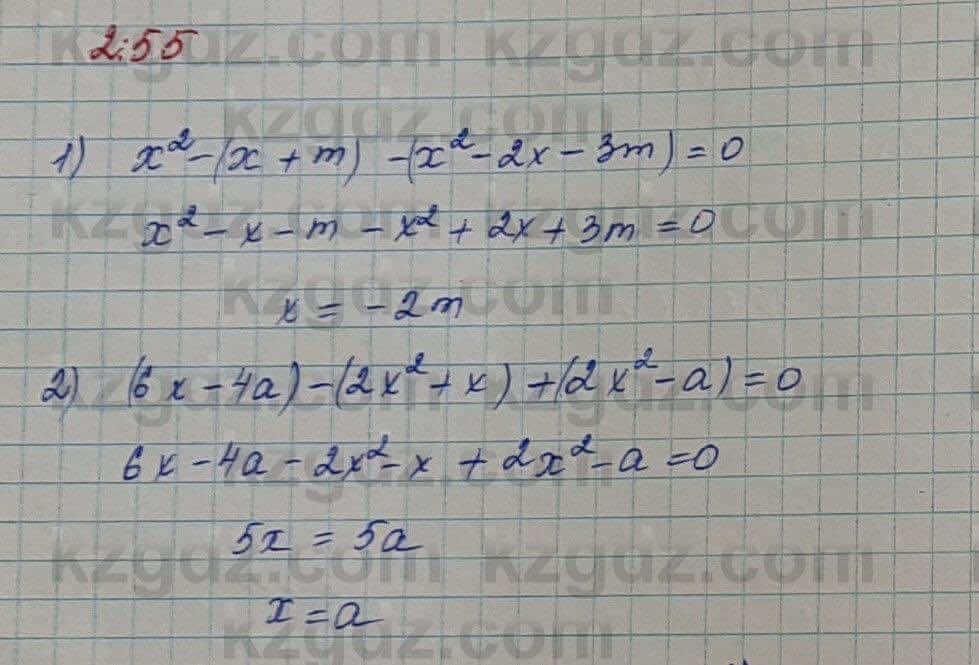 2.55
1) x² - (x + m) - (x² - 2x - 3m) = 0
x² - x - m - x² + 2x + 3m = 0
x = -2m
2) (6x - 4a) - (2x² + x) + (2x² - a) = 0
6x - 4a - 2x² - x + 2x² - a = 0
5x = 5a
x = a
kzgdz.com kzgdz.com
kzgdz.com
kzgdz.com kzgdz.com
kzgdz.com
kzgdz.com kzgdz.com
kzgdz.com
kzgdz.com kzgdz.com
kzgdz.com